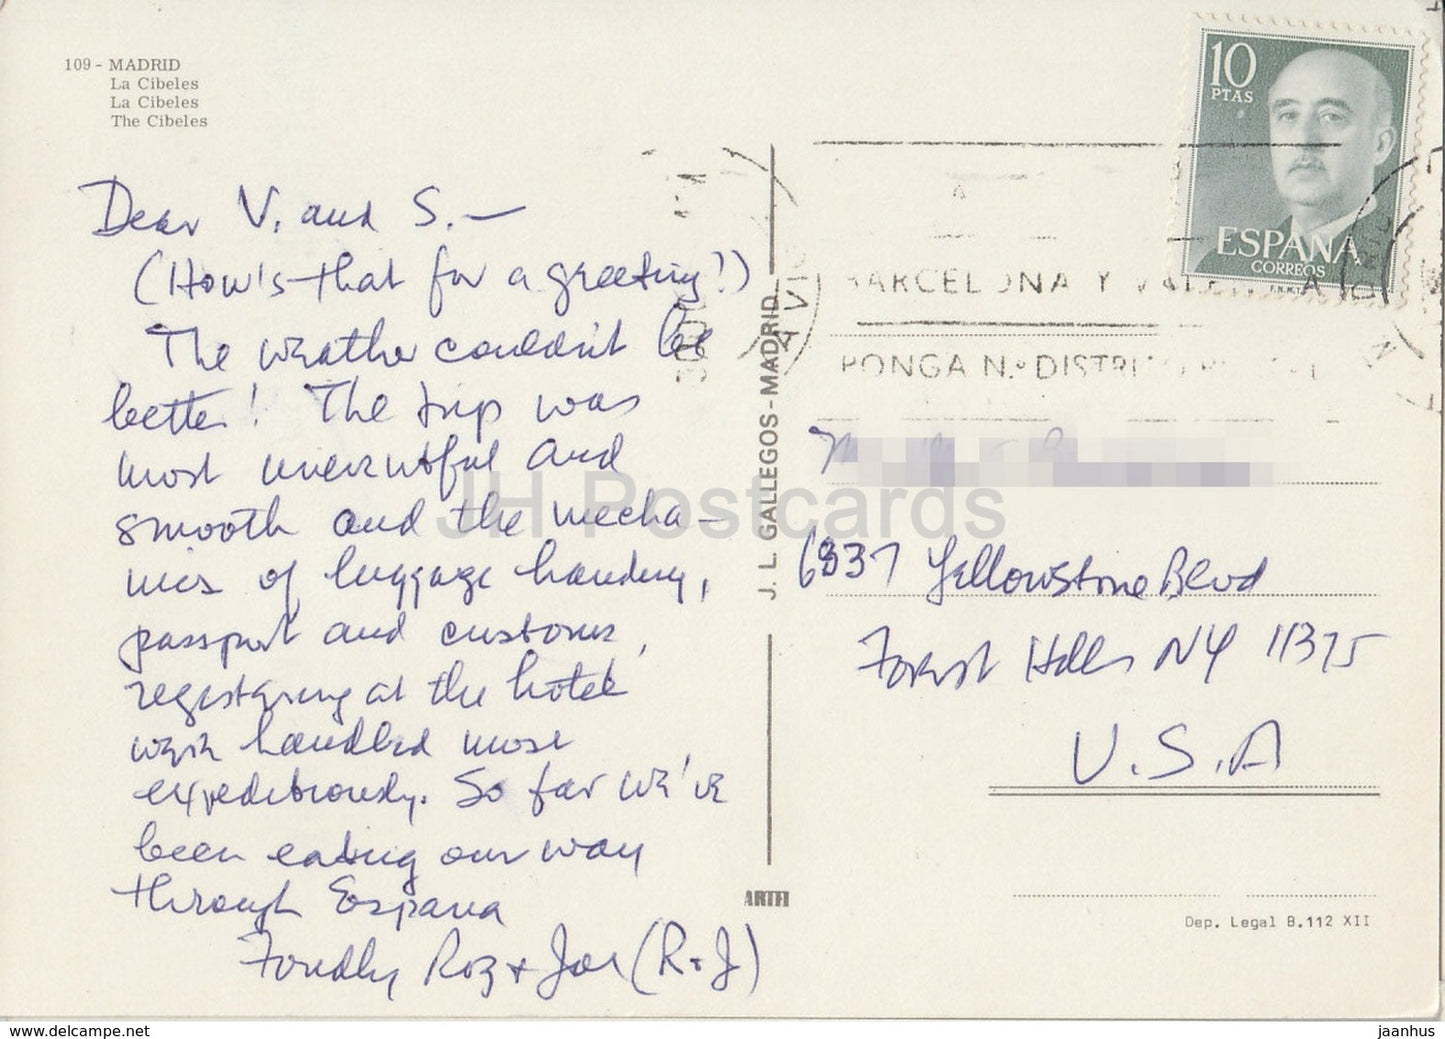 109 - MADRID
La Cibeles
La Cibeles
The Cibeles
Dear V. and S. —
(How's that for a greeting!)
The weather couldn't be
better! The trip was
most uneventful and
smooth and the mecha-
nics of luggage handling,
passport and customs,
registering at the hotel
were handled most
expeditiously. So far we've
been eating our way
through Espana
Fondly Roz + Joe (R+J)
J. L. GALLEGOS - MADRID
ARTEI
10
PTAS
ESPAÑA
CORREOS
F.N.M.T.
BARCELONA Y
PONGA N.º DISTRITO
6837 Yellowstone Blvd
Forest Hills NY 11375
U.S.A
Dep. Legal B.112 XII
JH Postcards
https://www.delcampe.net
jaanhus